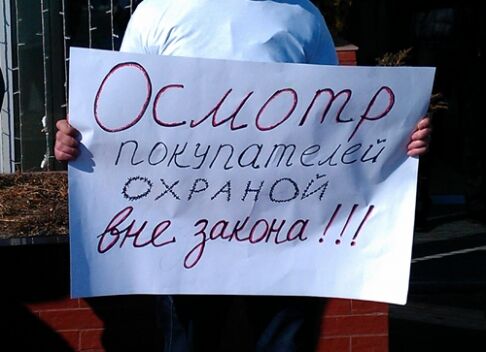 Осмотр
покупателей
охраной
вне закона!!!